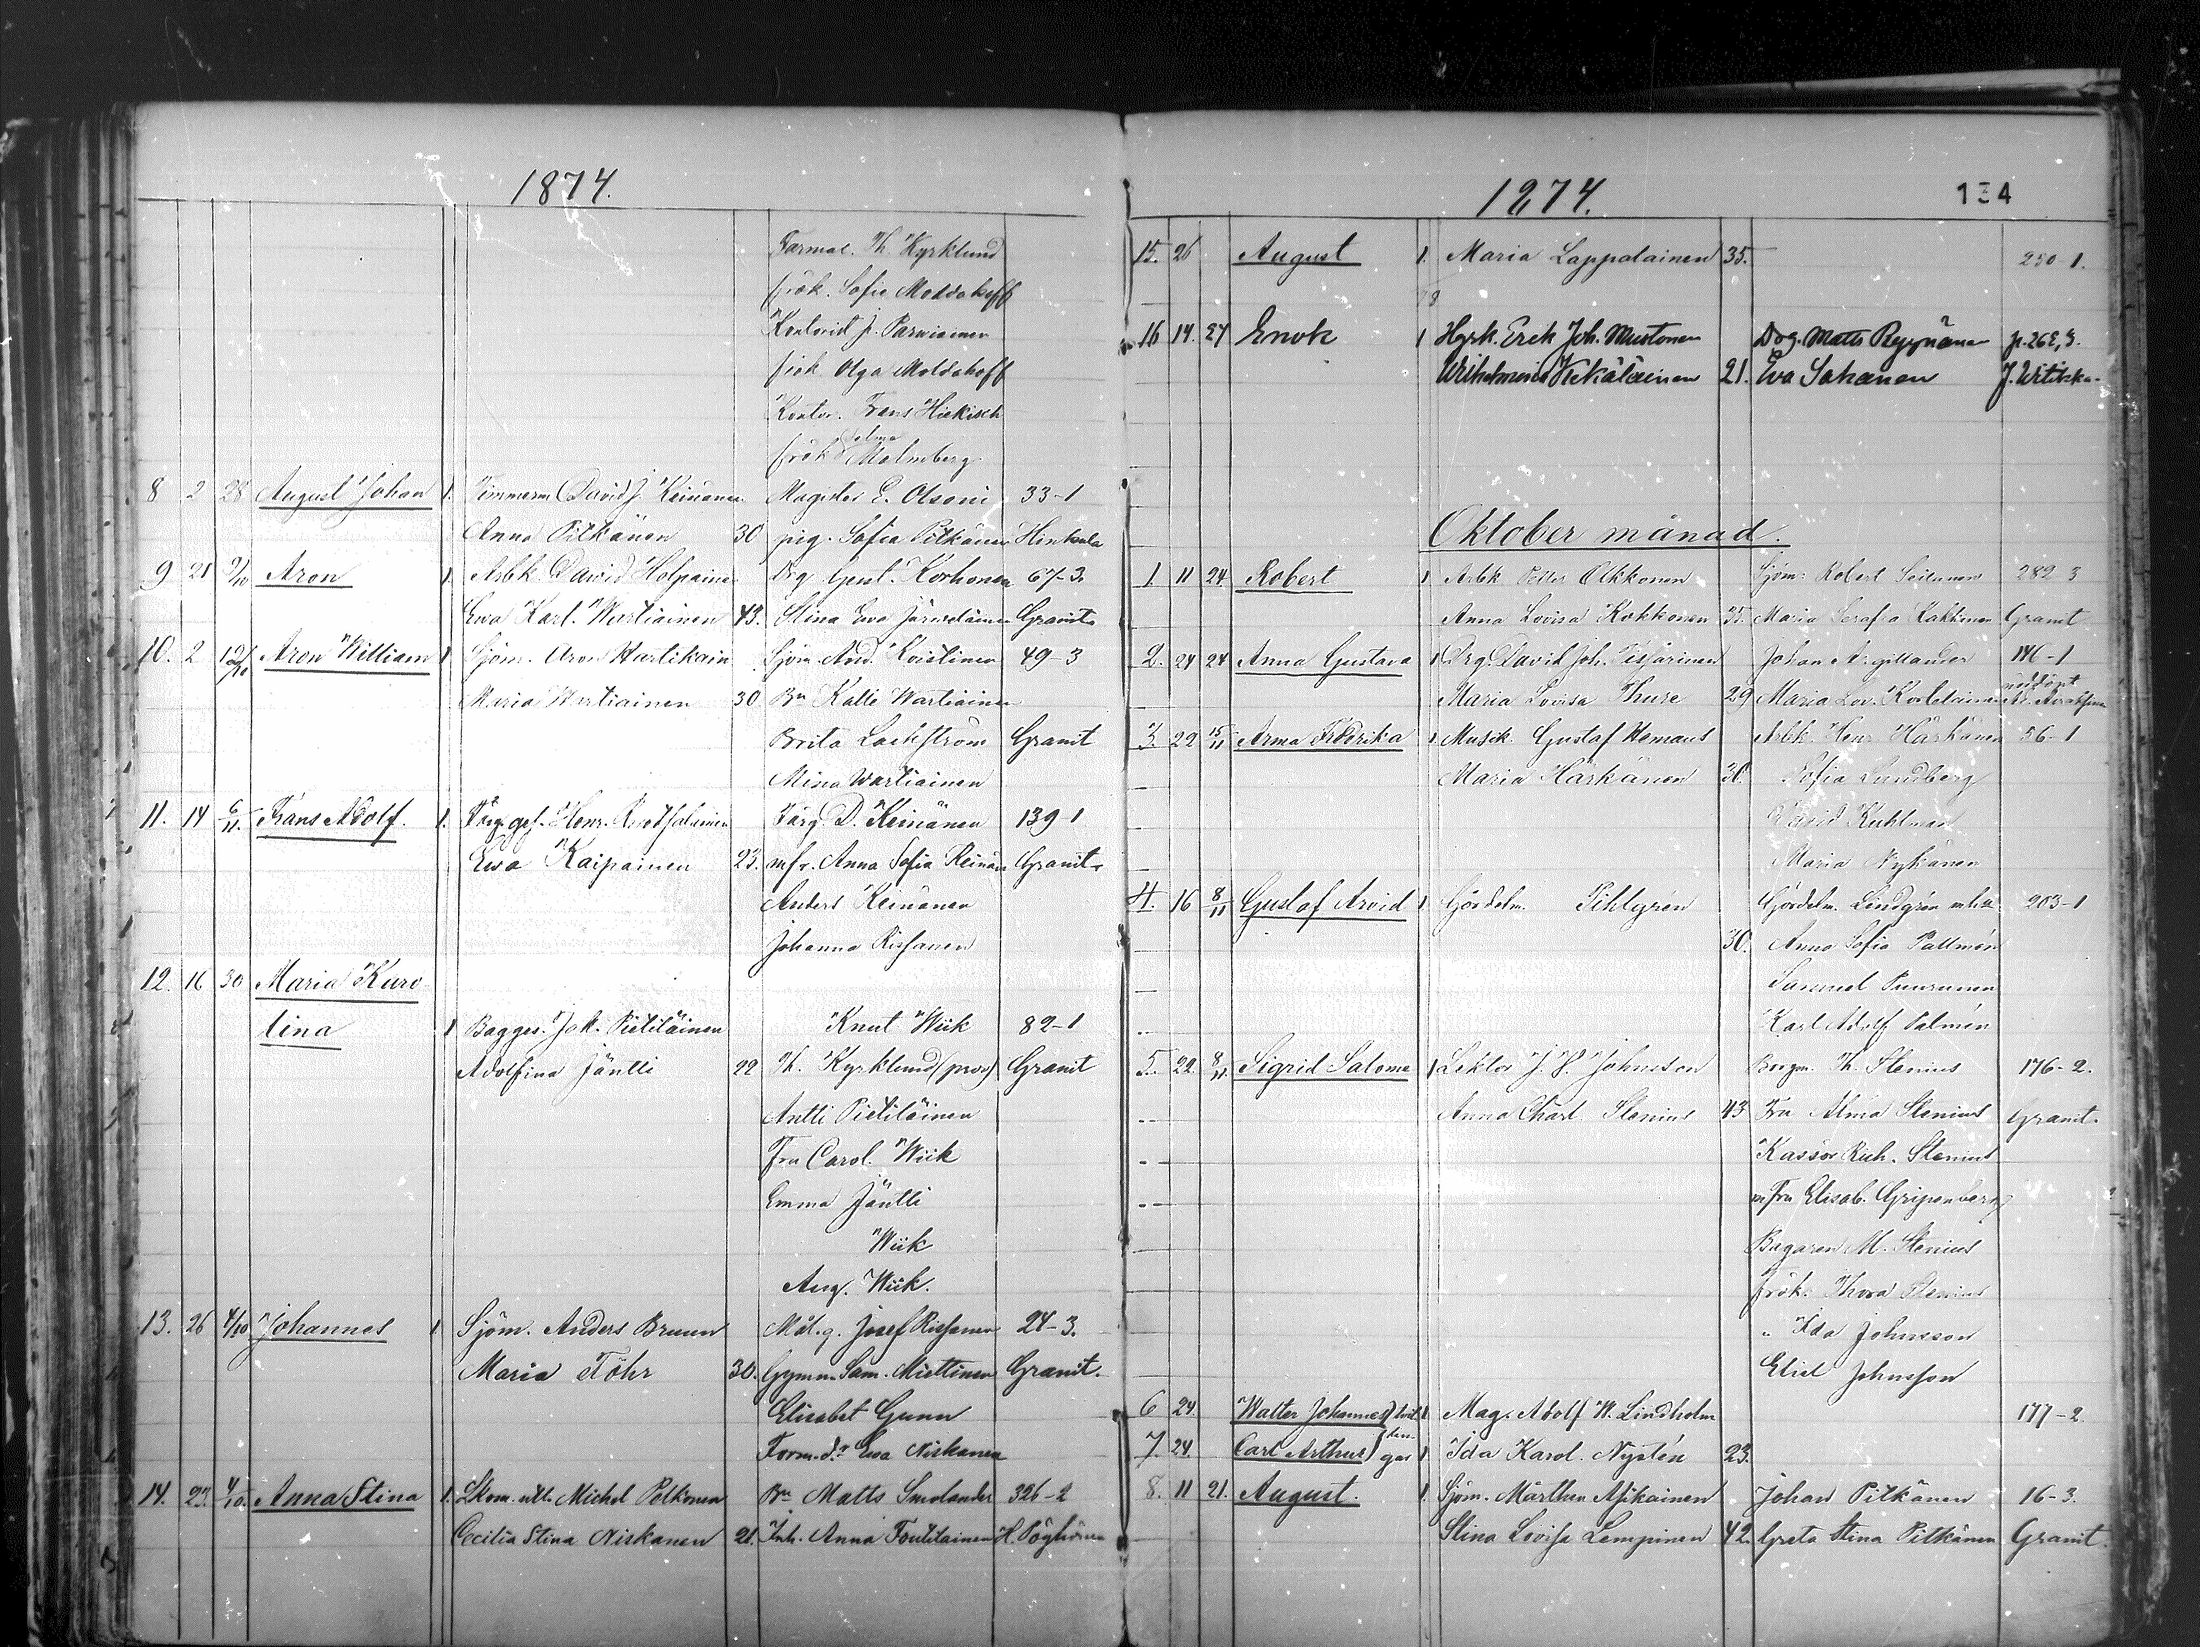 1874.
Farmac. Th. Kyrklund
frök. Sofie Moldakoff
Kontorist J. Parviainen
frök Olga Moldakoff
Kontor. Frans Hickisch
frök Selma Malmberg
8 2 28 August Johan 1. Timmerm David J. Keinänen Magister E. Olsoni 33-1
Anna Pitkänen 30 pig. Sofia Pitkänen Hinkula
9 21 2/10 Aron 1. Arbk. David Holpainen Drg. Gust. Korhonen 67-3.
Ewa Karl. Wartiainen 43. Stina Ewa Granit
10. 2 12/10 Aron William 1 Sjöm. Aron Hartikain Sjöm. And. Koistinen 49-3
Maria Wartiainen 30 Bn Kalle Wartiainen
Brita Lackström Granit
Mina Wartiainen
11. 14 6/11. Frans Adolf. 1. Färg.ges. Henr. Färg. D. Keinänen 139-1
Ewa Kaipainen 23. mfr. Anna Sofia Keinän Granit.
Anders Keinänen
Johanna Rissanen
12. 16 30 Maria Karo
lina 1 Bagges. Jak. Pietiläinen Knut Wiik 82-1
Adolfina Jäntti 22 Th. Kyrklund (prov) Granit
Antti Pietiläinen
Fru Carol. Wiik
Emma Jäntti
Wiik
Aug. Wiik.
13. 26 4/10 Johannes 1 Sjöm. Anders Bruun Mål.g. Josef Rissanen 24-3.
Maria Föhr 30. Gymn. Sam. Miettinen Granit.
Elisabet Gunn
Form.dr Ewa Niskanen
14. 23. 4/10. Anna Stina 1. Skom. Michel Pelkonen Bn Matts Smolander 326-2
Cecilia Stina Niskanen 21. Inh. Anna
1874. 134
15. 26 August 1. Maria Lappalainen 35. 250-1.
16 14. 27 Enok 1 Hyrk. Erek Joh. Mustonen Drg. Matts Ryynänen
Wilhelmina Kekäläinen 21. Eva Sahanen
Oktober månad.
1. 11 24. Robert 1 Arbk Petter Olkkonen Sjöm. Robert 282-3
Anna Lovisa Kokkonen 35. Maria Serafia Granit
2. 24 24 Anna Gustava 1 Drg. David Joh. Johan Argillander 146-1
Maria Lovisa Thure 29 Maria Lov. nöddöpt
3. 22 15/11 Anna Fredrika 1 Musik. Gustaf Hemans Arbk. Henr. Härkänen 56-1
Maria Härkänen 30. Sofia Lundberg
David Kuhlman
Maria Nykänen
4. 16 8/11 Gustaf Arvid 1 Gördelm. Pihlgrén Gördelm. Lindgrén 203-1
30. Anna Sofia Pallmén
Samuel Puurunen
Karl Adolf Palmén
5. 22. 8/11. Sigrid Salome 1 Lektor Johnsson Borgm. Th. Stenius 176-2.
Anna Charl Stenius 43 Fru Alma Stenius Granit.
Kassör Rich. Stenius
m Fru Elisab. Gripenberg
Bagaren M. Stenius
frök. Thora Stenius
" Ida Johnsson
Eliel Johnsson
6 24 Walter Johannes 1 Mag. Adolf W. Lindholm 177-2.
7. 24. Carl Arthur 1. Ida Karol. Nystén 23.
8. 11 21. August. 1. Sjöm. Mårthen Asikainen Johan Pitkänen 16-3.
Stina Lovisa Lempinen 42. Greta Stina Pitkänen Granit.